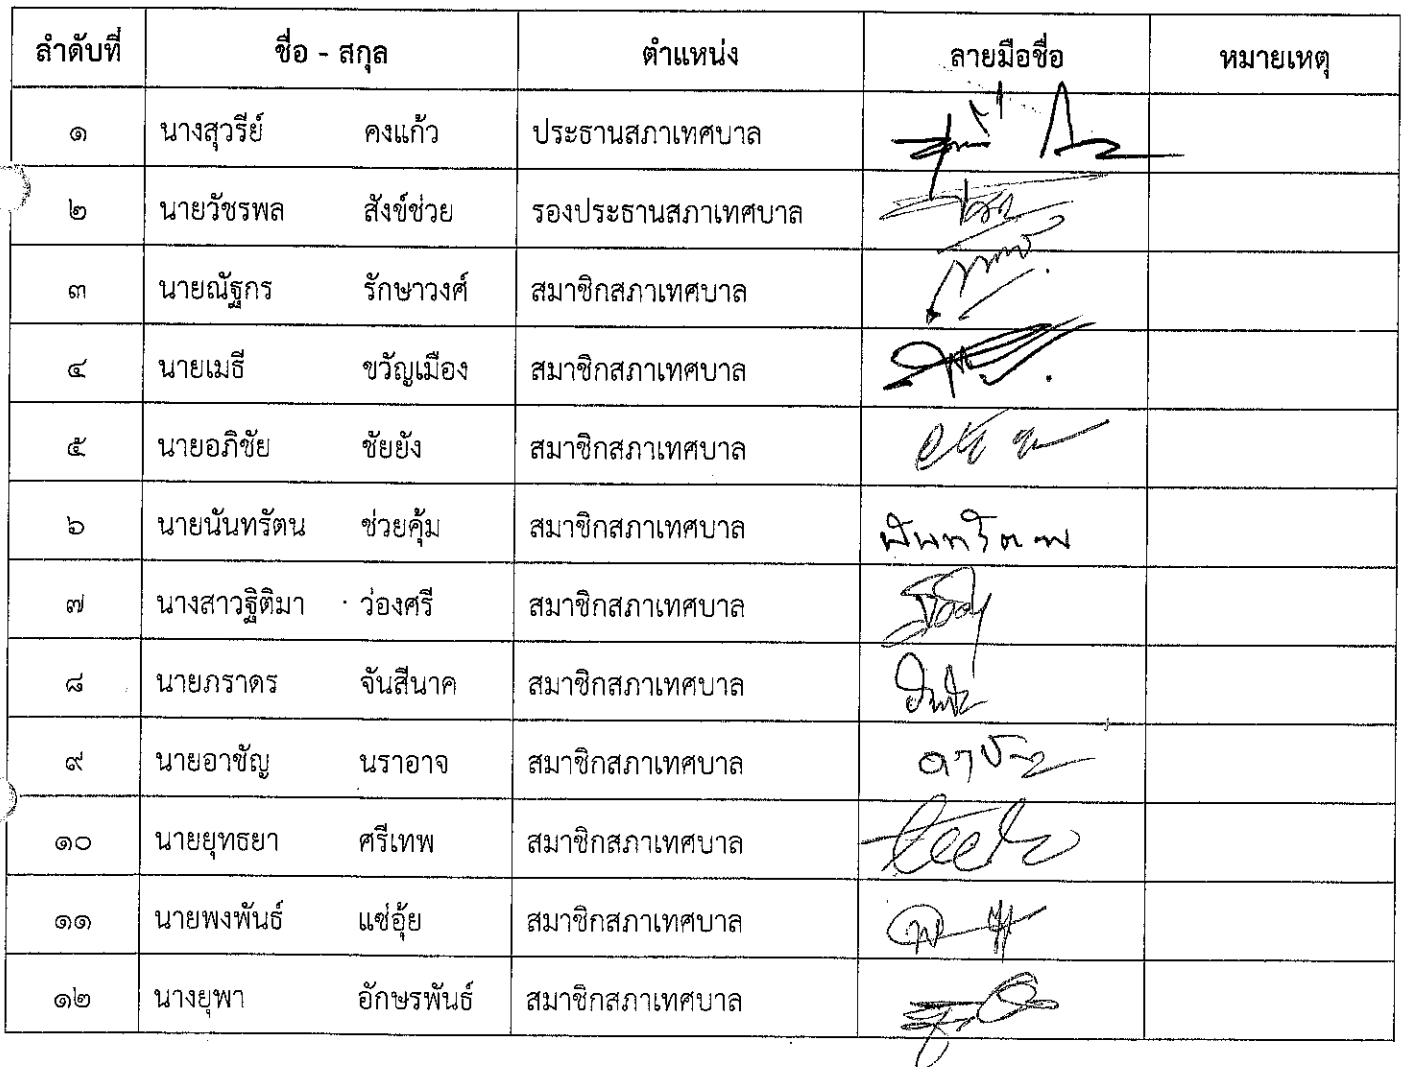 ลำดับที่ ชื่อ - สกุล ตำแหน่ง ลายมือชื่อ หมายเหตุ
๑ นางสุวรีย์ คงแก้ว ประธานสภาเทศบาล
๒ นายวัชรพล สังข์ช่วย รองประธานสภาเทศบาล
๓ นายณัฐกร รักษาวงศ์ สมาชิกสภาเทศบาล
๔ นายเมธี ขวัญเมือง สมาชิกสภาเทศบาล
๕ นายอภิชัย ชัยยัง สมาชิกสภาเทศบาล
๖ นายนันทรัตน ช่วยคุ้ม สมาชิกสภาเทศบาล นันทรัตน
๗ นางสาวฐิติมา ว่องศรี สมาชิกสภาเทศบาล
๘ นายภราดร จันสีนาค สมาชิกสภาเทศบาล
๙ นายอาชัญ นราอาจ สมาชิกสภาเทศบาล
๑๐ นายยุทธยา ศรีเทพ สมาชิกสภาเทศบาล
๑๑ นายพงพันธ์ แซ่อุ้ย สมาชิกสภาเทศบาล
๑๒ นางยุพา อักษรพันธ์ สมาชิกสภาเทศบาล